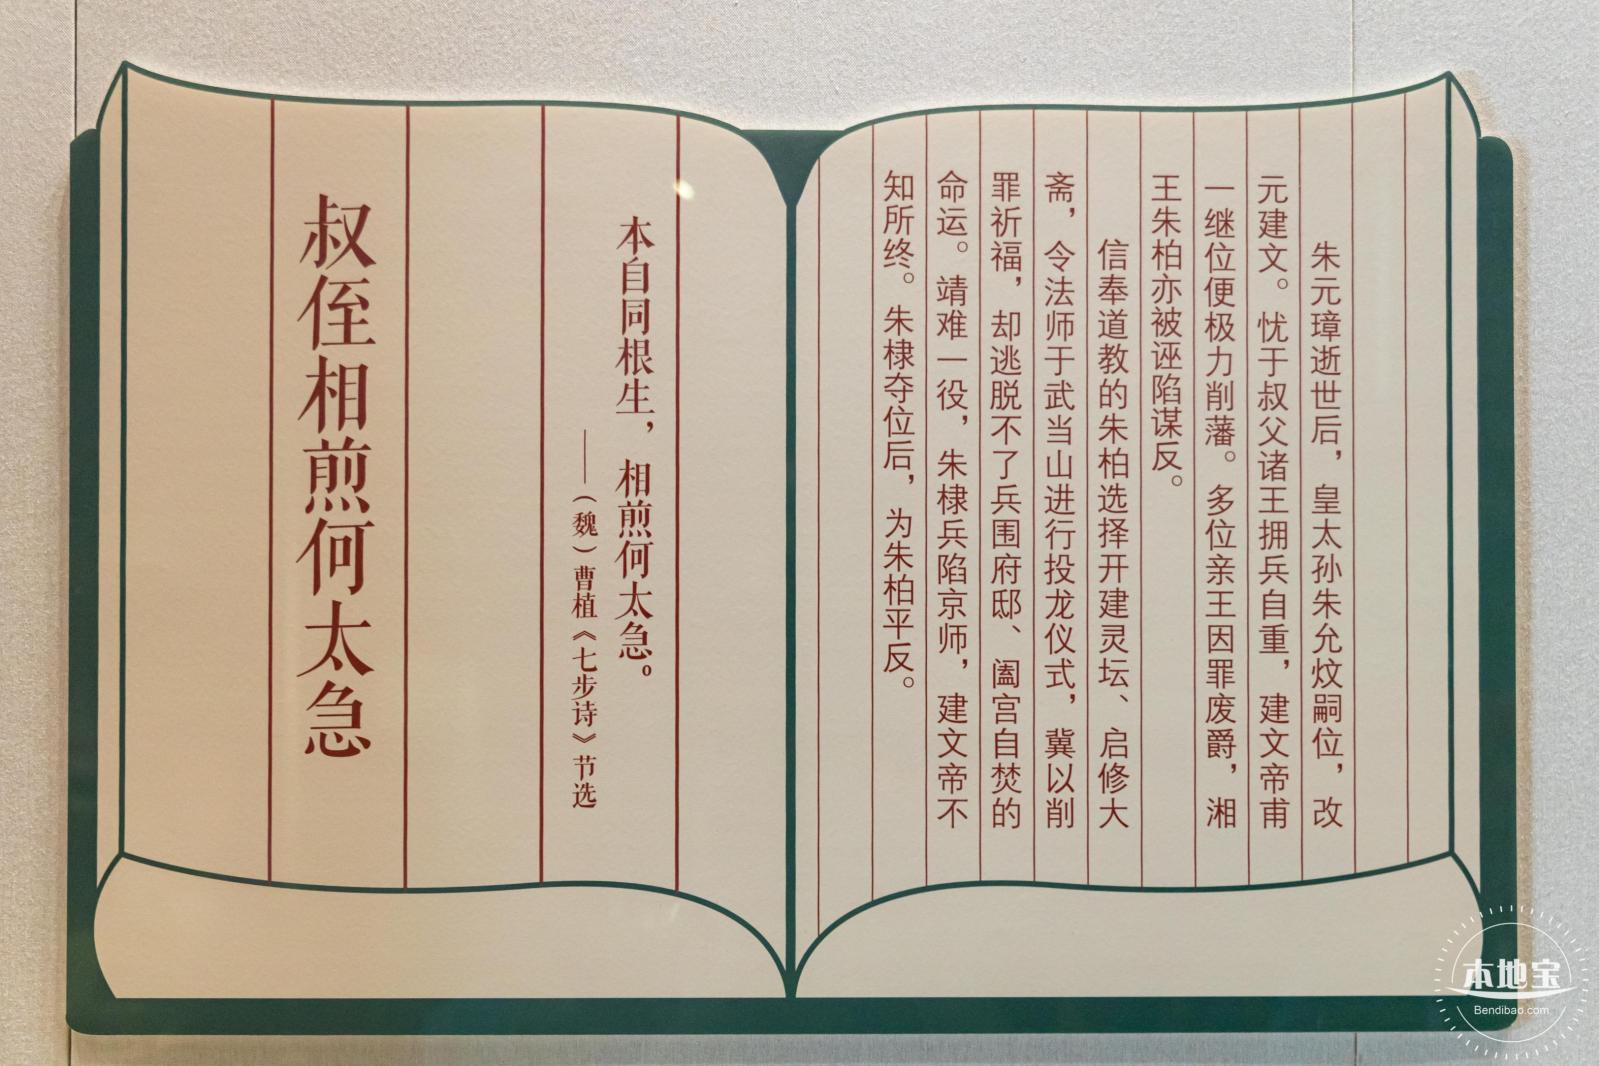 朱元璋逝世后，皇太孙朱允炆嗣位，改
元建文。忧于叔父诸王拥兵自重，建文帝甫
一继位便极力削藩。多位亲王因罪废爵，湘
王朱柏亦被诬陷谋反。
信奉道教的朱柏选择开建灵坛、启修大
斋，令法师于武当山进行投龙仪式，冀以削
罪祈福，却逃脱不了兵围府邸、阖宫自焚的
命运。靖难一役，朱棣兵陷京师，建文帝不
知所终。朱棣夺位后，为朱柏平反。
本自同根生，相煎何太急。
——（魏）曹植《七步诗》节选
叔侄相煎何太急
本地宝
Bendibao.com